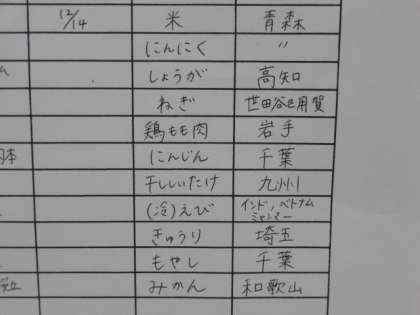 12/14 米 青森
にんにく 〃
しょうが 高知
ねぎ 世田谷区用賀
鶏もも肉 岩手
にんじん 千葉
干ししいたけ 九州
(冷)えび インド、ベトナム
ミャンマー
きゅうり 埼玉
もやし 千葉
みかん 和歌山